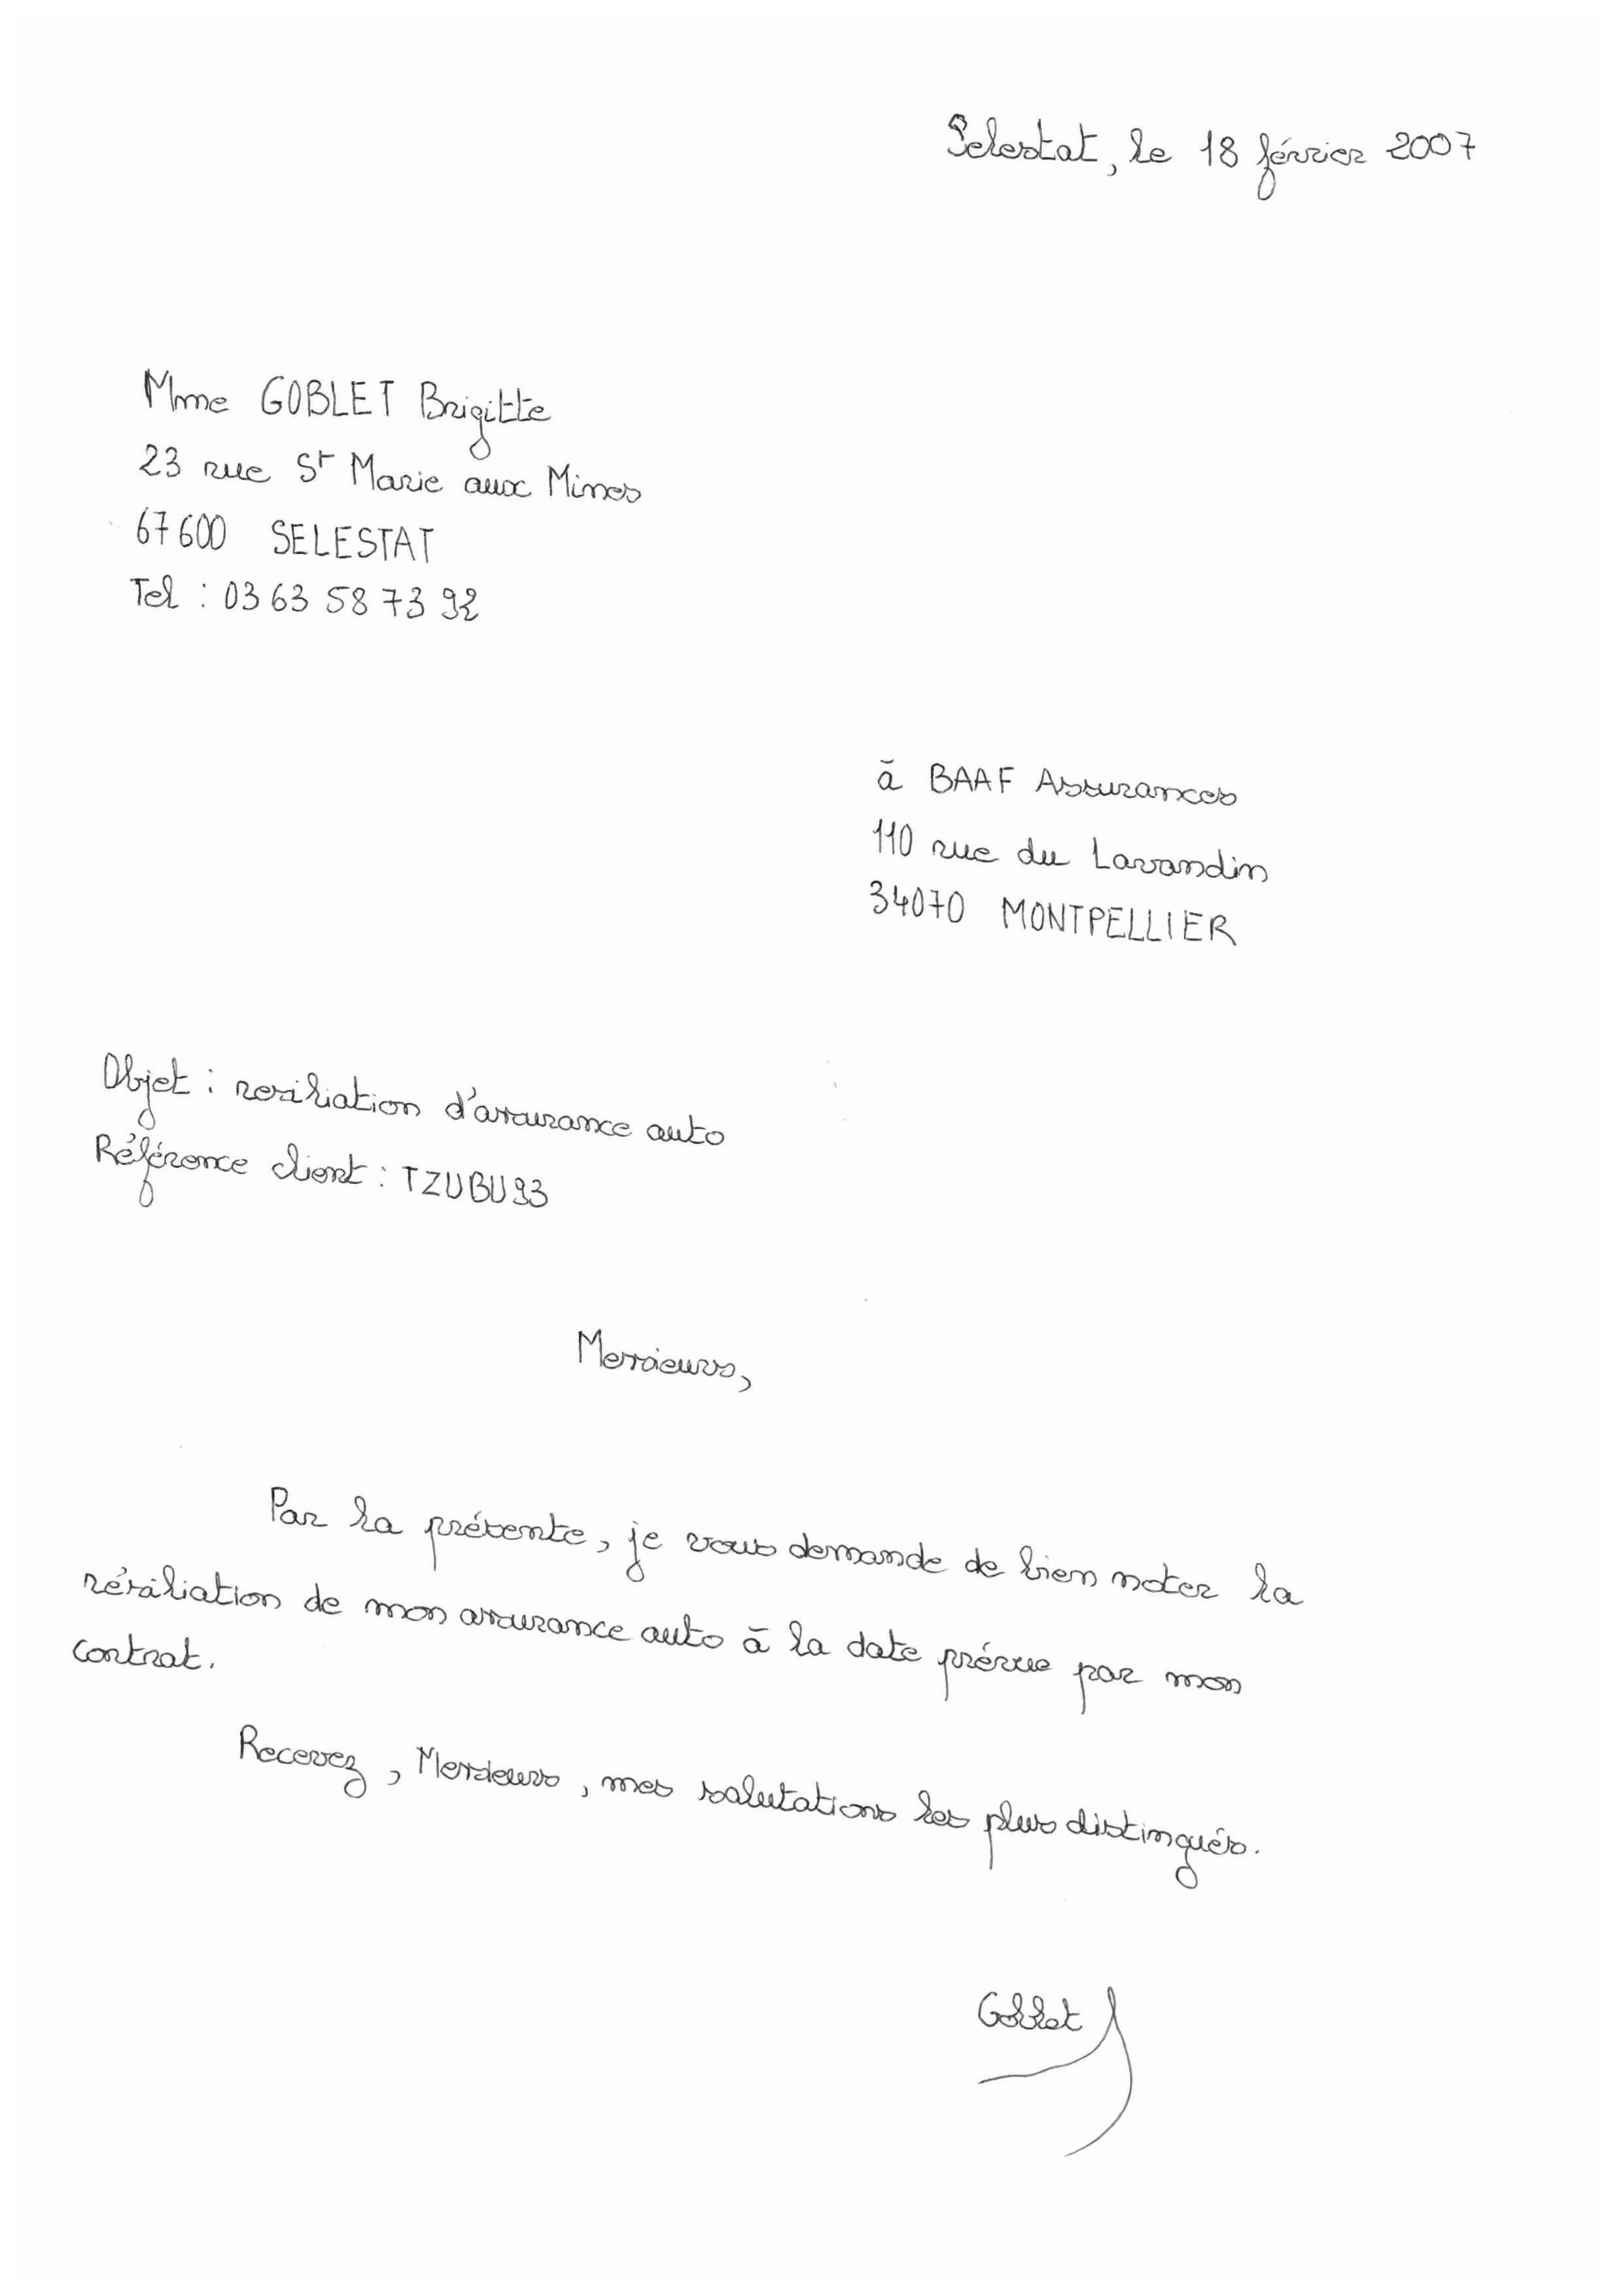 Selestat, le 18 février 2007
Mme GOBLET Brigitte
23 rue St Marie aux Mines
67600 SELESTAT
Tel : 03 63 58 73 92
à BAAF Assurances
110 rue du Lavandin
34070 MONTPELLIER
Objet : resiliation d'assurance auto
Référence client : TZUBU93
Messieurs,
Par la présente, je vous demande de bien noter la
résiliation de mon assurance auto à la date prévue par mon
contrat.
Recevez, Messieurs, mes salutations les plus distingués.
Goblet